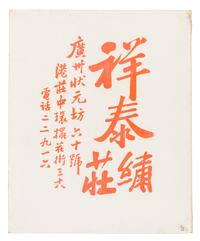 祥泰繡莊
廣州狀元坊六十號
港莊中環擺花街三六
電話二二九一六